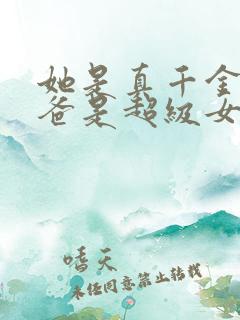 她是真千金
爸是超级女
嗜天
未经同意禁止转载